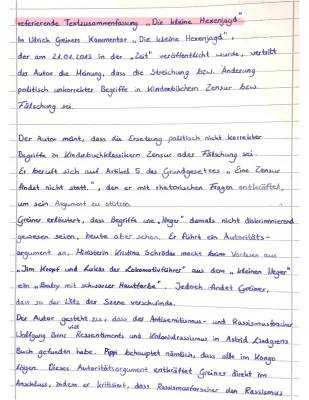 referierende Textzusammenfassung „Die kleine Hexenjagd"
In Ulrich Greiners Kommentar „Die kleine Hexenjagd",
der am 21.01.2013 in der „Zeit" veröffentlicht wurde, vertritt
der Autor die Meinung, dass die Streichung bzw. Änderung
politisch unkorrekter Begriffe in Kinderbüchern Zensur bzw.
Fälschung sei.
Der Autor meint, dass die Ersetzung politisch nicht korrekter
Begriffe in Kinderbuchklassikern Zensur oder Fälschung sei.
Er beruft sich auf Artikel 5 des Grundgesetzes „Eine Zensur
findet nicht statt.", den er mit rhetorischen Fragen entkräftet,
um sein Argument zu stützen.
Greiner erläutert, dass Begriffe wie „Neger" damals nicht diskriminierend
gewesen seien, heute aber schon. Er führt ein Autoritäts-
argument an. Ministerin Kristina Schröder macht beim Vorlesen aus
„Jim Knopf und Lukas der Lokomotivführer" aus dem „kleinen Neger"
ein „Baby mit schwarzer Hautfarbe". Jedoch findet Greiner,
dass so der Witz der Szene verschwinde.
Der Autor gesteht zu, dass der Antisemitismus- und Rassismusforscher
Wolfgang Benz viel Ressentiments und Kolonialrassismus in Astrid Lindgrens
Buch gefunden habe. Pippi behauptet nämlich, dass alle im Kongo
lügen. Dieses Autoritätsargument entkräftet Greiner direkt im
Anschluss, indem er kritisiert, dass Rassismusforscher den Rassismus